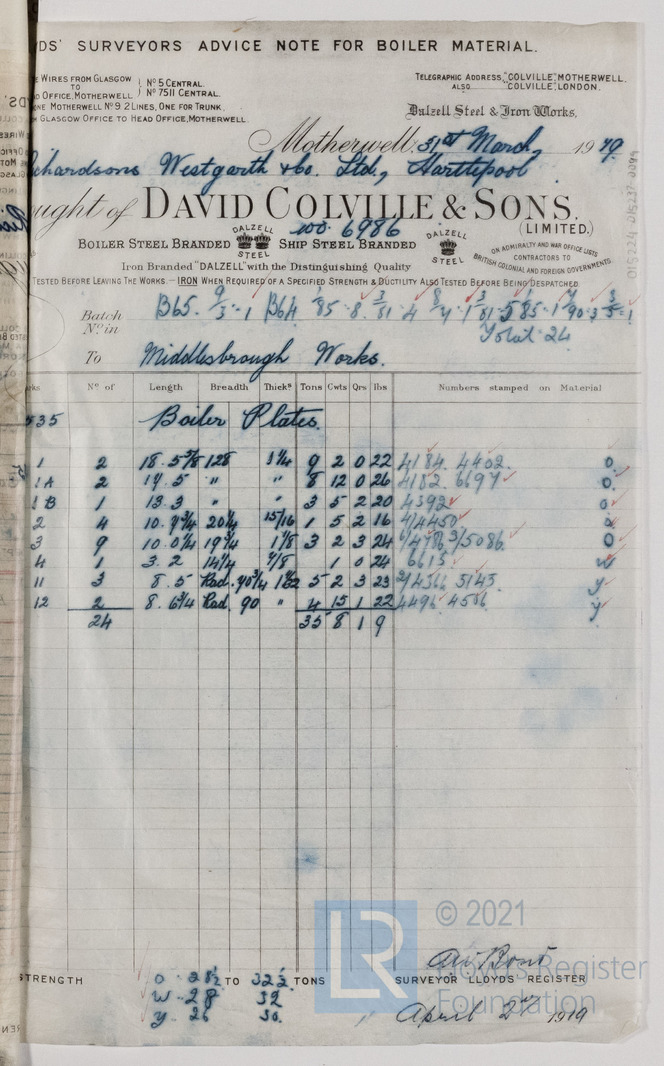 YDS' SURVEYORS ADVICE NOTE FOR BOILER MATERIAL.
E WIRES FROM GLASGOW TO D OFFICE, MOTHERWELL } Nº 5 CENTRAL. Nº 7511 CENTRAL.
ONE MOTHERWELL Nº 9. 2 LINES, ONE FOR TRUNK.
M GLASGOW OFFICE TO HEAD OFFICE, MOTHERWELL.
TELEGRAPHIC ADDRESS, "COLVILLE", MOTHERWELL.
ALSO "COLVILLE", LONDON.
Dalzell Steel & Iron Works,
Motherwell, 31st March, 1919.
ichardsons Westgarth & Co. Ltd., Hartlepool
ought of DAVID COLVILLE & SONS.
(LIMITED.)
wo. 6986
BOILER STEEL BRANDED DALZELL STEEL SHIP STEEL BRANDED DALZELL STEEL
ON ADMIRALTY AND WAR OFFICE LISTS
CONTRACTORS TO
BRITISH COLONIAL AND FOREIGN GOVERNMENTS.
Iron Branded "DALZELL" with the Distinguishing Quality
TESTED BEFORE LEAVING THE WORKS.—IRON WHEN REQUIRED OF A SPECIFIED STRENGTH & DUCTILITY ALSO TESTED BEFORE BEING DESPATCHED
Batch Nº in B65. 9/3 - 1 B64
Total 24
To Middlesbrough Works.
rks Nº of Length Breadth Thickˢ Tons Cwts Qrs lbs Numbers stamped on Material
535 Boiler Plates.
1 2 18. 5 5/8 128 1 1/4 9 2 0 22 4184. 4402. O.
1A 2 17. 5 " " 8 12 0 26 4182 6697 O.
1B 1 13. 3 " " 3 5 2 20 4392 O
2 4 20 1/4 15/16 1 5 2 16 4/4450 O
3 9 10. 0 1/4 19 3/4 1 1/8 3 2 3 24 6/4786, 3/5086. O
4 1 3. 2 14 1/4 7/8 1 0 24 6615 W
11 3 8. 5 Rad. 90 3/4 5 2 3 23 2/4566 5143 Y
12 2 8. 6 3/4 Rad. 90 " 4 15 1 22 4496 4506 Y
24 35 8 1 9
STRENGTH O. 28 1/2 TO 32 1/2 TONS
W. 28 32
Y. 26 30.
SURVEYOR LLOYDS' REGISTER
April 2nd 1919
015224-015237-0094
LR
© 2021
Lloyd's Register
Foundation